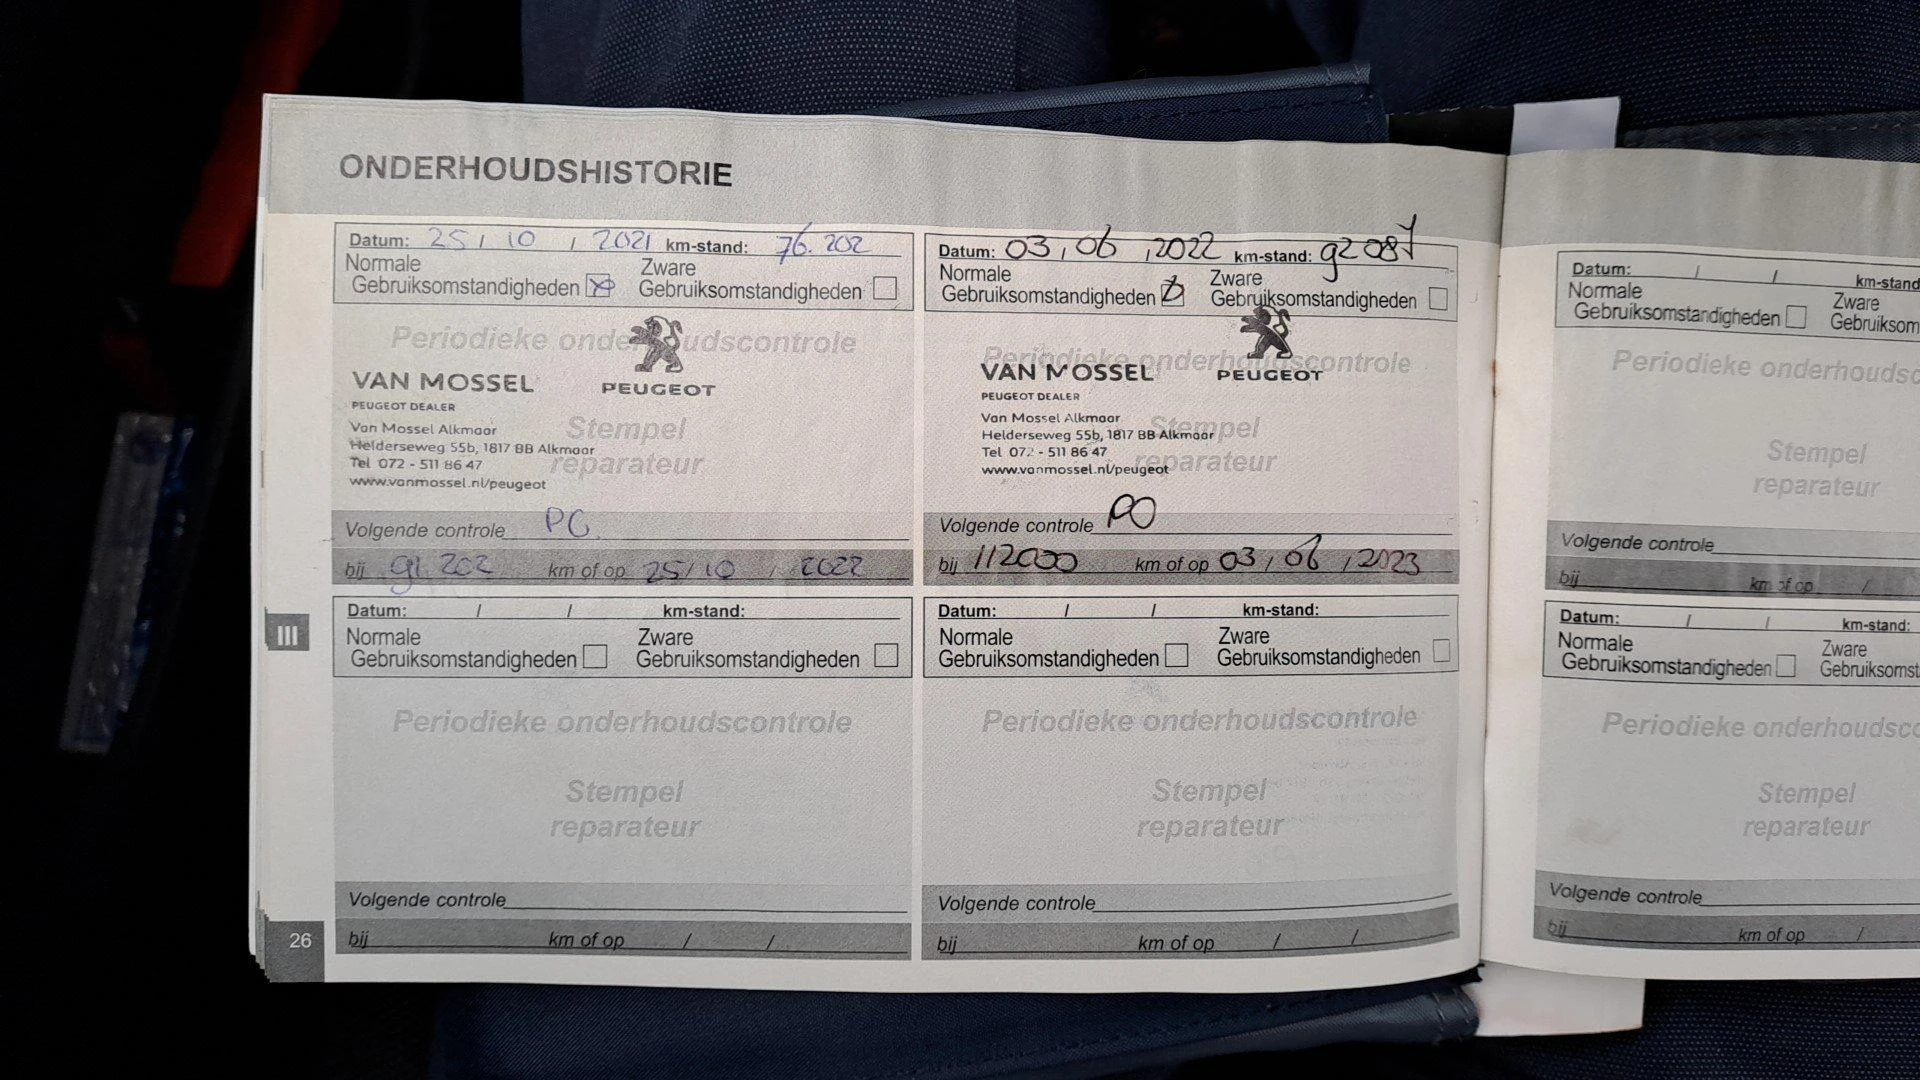 ONDERHOUDSHISTORIE
Datum: 25 / 10 / 2021 km-stand: 76.202
Normale
Gebruiksomstandigheden
Zware
Gebruiksomstandigheden
Periodieke onderhoudscontrole
VAN MOSSEL
PEUGEOT
PEUGEOT DEALER
Van Mossel Alkmaar
Helderseweg 55b, 1817 BB Alkmaar
Tel 072 - 511 86 47
www.vanmossel.nl/peugeot
Stempel
reparateur
Volgende controle
bij 91.202 km of op 25/10 / 2022
Datum: 03 / 06 / 2022 km-stand: 92087
Normale
Gebruiksomstandigheden
Zware
Gebruiksomstandigheden
Periodieke onderhoudscontrole
VAN MOSSEL
PEUGEOT
PEUGEOT DEALER
Van Mossel Alkmaar
Helderseweg 55b, 1817 BB Alkmaar
Tel 072 - 511 86 47
www.vanmossel.nl/peugeot
Stempel
reparateur
Volgende controle PO
bij 112000 km of op 03 / 06 / 2023
Datum: / / km-stand:
Normale
Gebruiksomstandigheden
Zware
Gebruiksomstandigheden
Periodieke onderhoudscontrole
Stempel
reparateur
Volgende controle
bij km of op / /
Datum: / / km-stand:
Normale
Gebruiksomstandigheden
Zware
Gebruiksomstandigheden
Periodieke onderhoudscontrole
Stempel
reparateur
Volgende controle
bij km of op / /
III
26
Datum: / / km-stand
Normale
Gebruiksomstandigheden
Zware
Gebruiksom
Periodieke onderhoudsc
Stempel
reparateur
Volgende controle
bij km of op /
Datum: / / km-stand:
Normale
Gebruiksomstandigheden
Zware
Gebruiksomst
Periodieke onderhoudsco
Stempel
reparateur
Volgende controle
bij km of op /